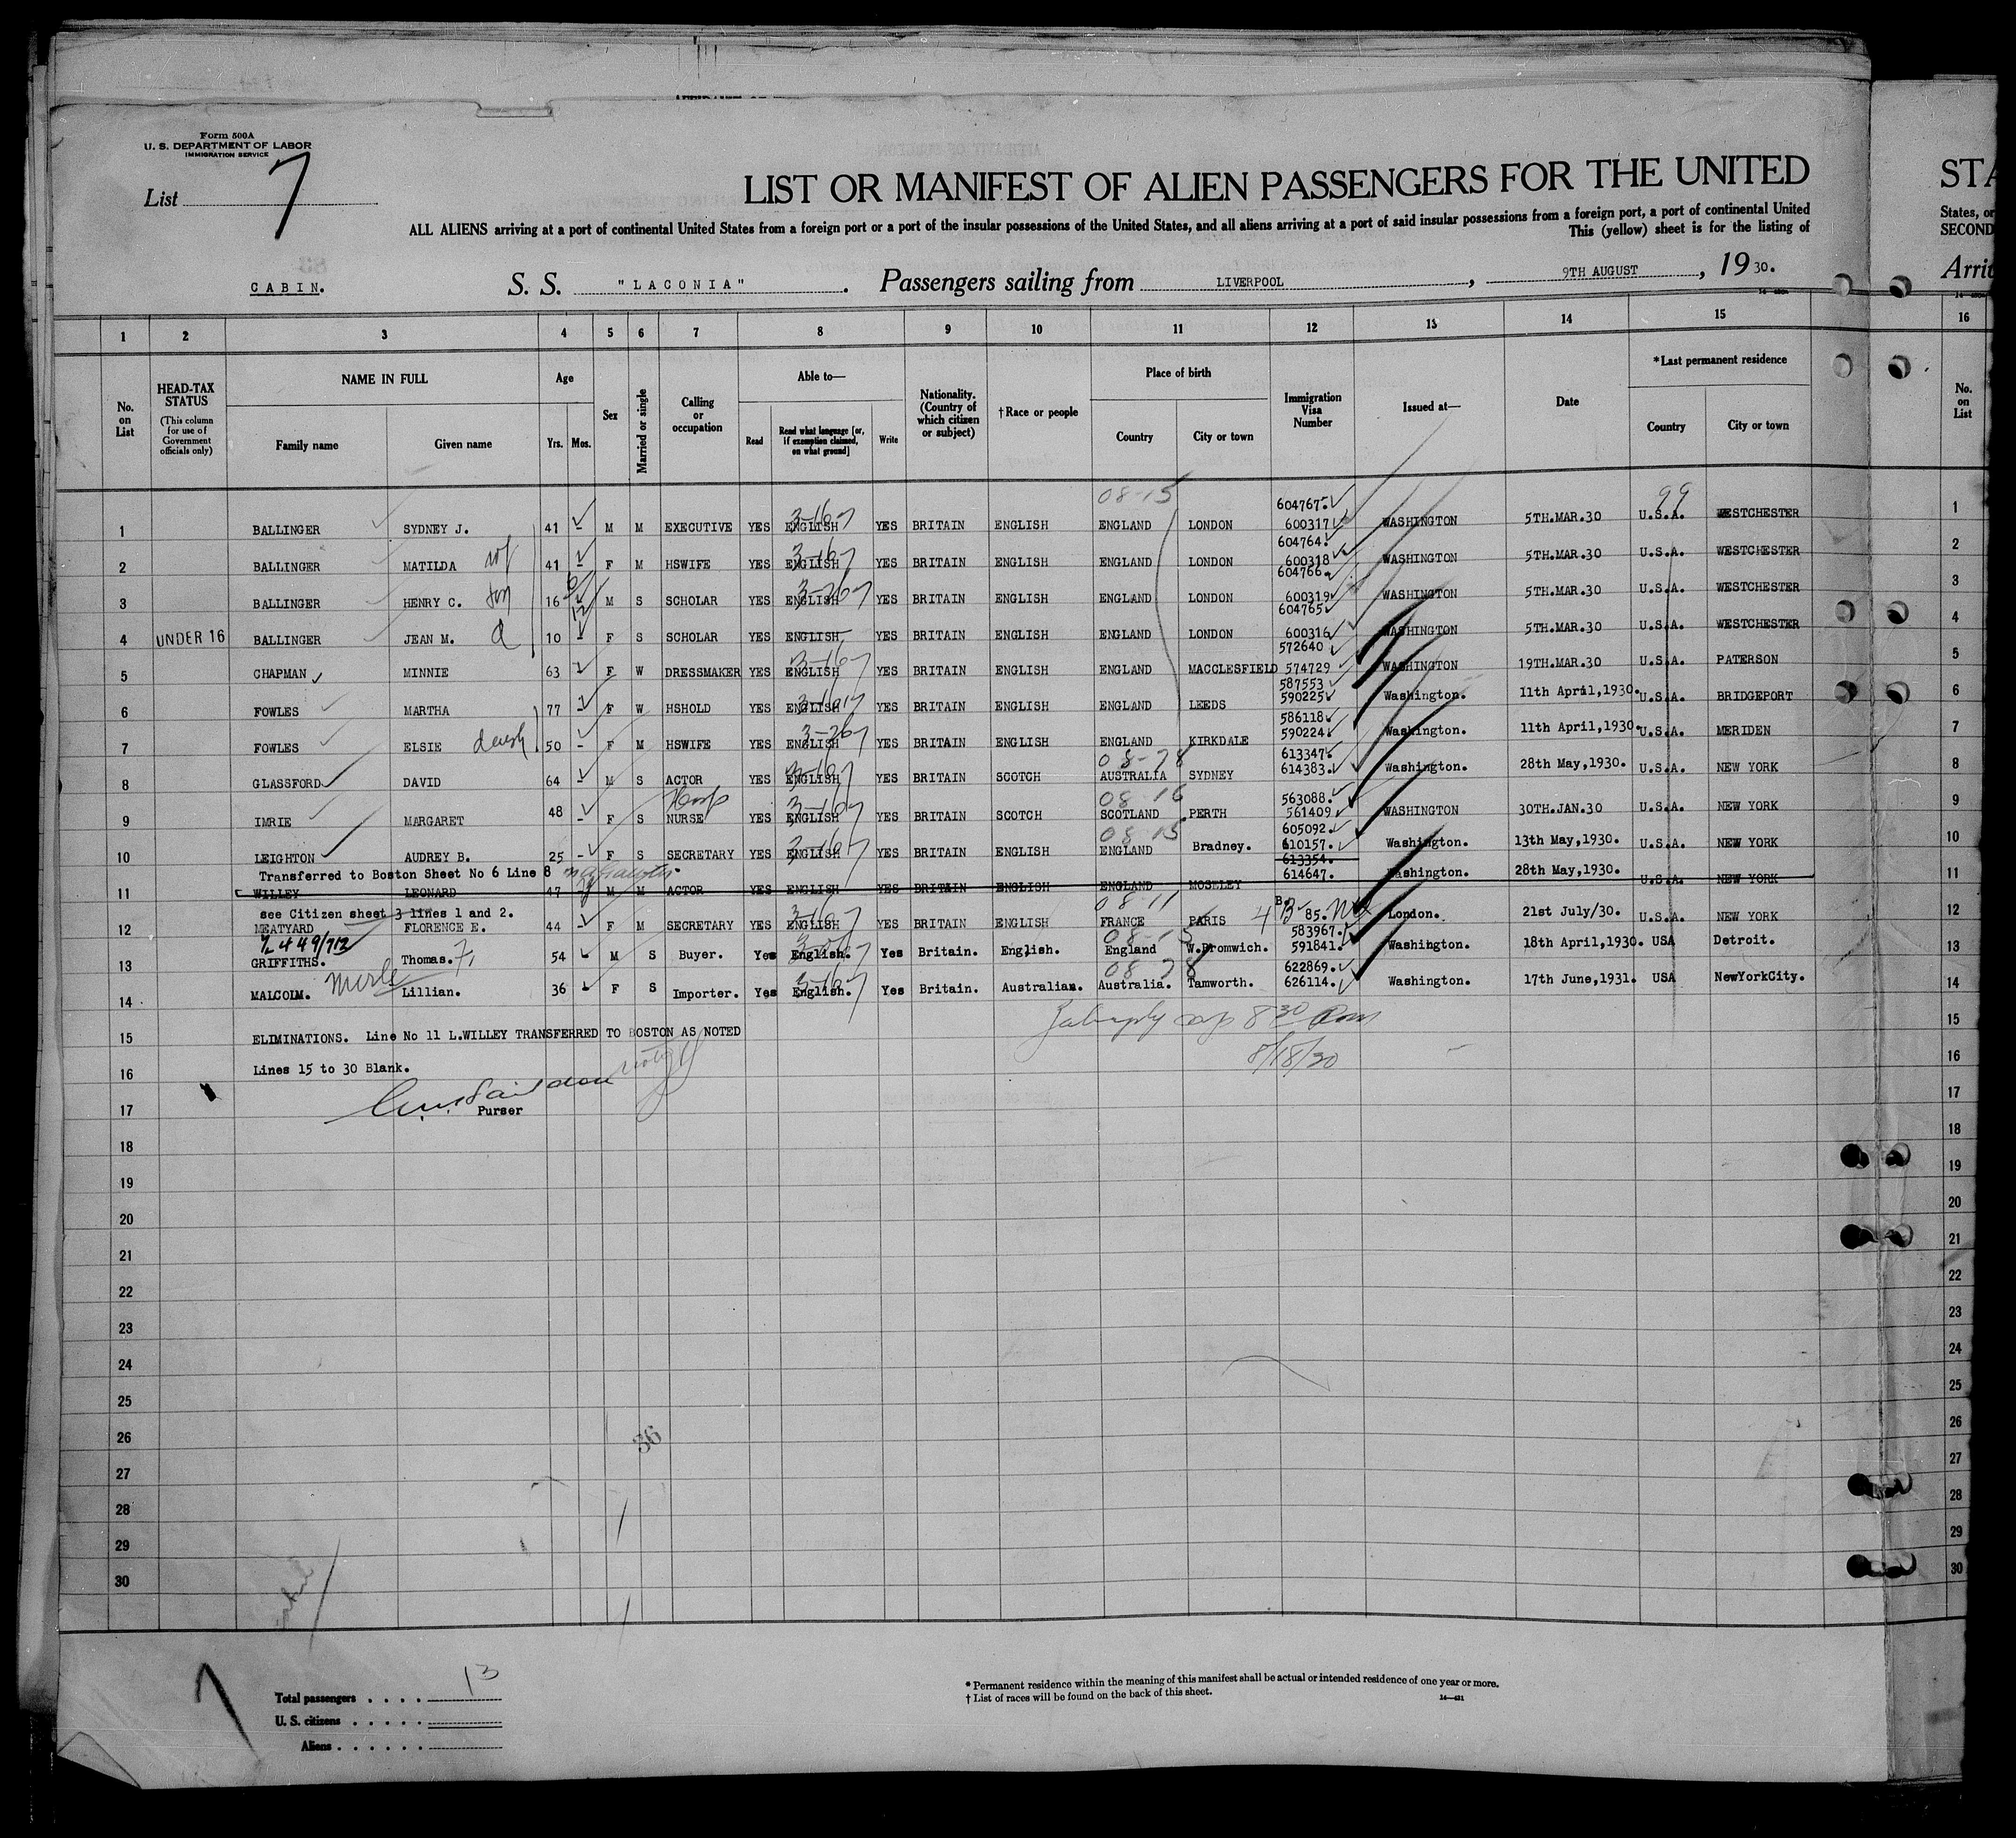 Form 500A
U. S. DEPARTMENT OF LABOR
IMMIGRATION SERVICE
List 7
LIST OR MANIFEST OF ALIEN PASSENGERS FOR THE UNITED
ALL ALIENS arriving at a port of continental United States from a foreign port or a port of the insular possessions of the United States, and all aliens arriving at a port of said insular possessions from a foreign port, a port of continental United
This (yellow) sheet is for the listing of
CABIN. S. S. "LACONIA". Passengers sailing from LIVERPOOL, 9TH AUGUST, 1930.
STA
States, or
SECOND
Arri
1 2 3 4 5 6 7 8 9 10 11 12 13 14 15 16
No. on List
HEAD-TAX STATUS
(This column for use of Government officials only)
NAME IN FULL
Family name Given name
Age
Yrs. Mos.
Sex
Married or single
Calling or occupation
Able to—
Read
Read what language [or, if exemption claimed, on what ground]
Write
Nationality. (Country of which citizen or subject)
†Race or people
Place of birth
Country City or town
Immigration Visa Number
Issued at—
Date
*Last permanent residence
Country City or town
No. on List
08-15 604767 99
1 BALLINGER SYDNEY J. 41 - M M EXECUTIVE YES ENGLISH YES BRITAIN ENGLISH ENGLAND LONDON 600317 WASHINGTON 5TH.MAR.30 U.S.A. WESTCHESTER 1
604764
2 BALLINGER MATILDA wf 41 - F M HSWIFE YES ENGLISH YES BRITAIN ENGLISH ENGLAND LONDON 600318 WASHINGTON 5TH.MAR.30 U.S.A. WESTCHESTER 2
604766
3 BALLINGER HENRY C. son 16 M S SCHOLAR YES ENGLISH YES BRITAIN ENGLISH ENGLAND LONDON 600319 WASHINGTON 5TH.MAR.30 U.S.A. WESTCHESTER 3
604765
4 UNDER 16 BALLINGER JEAN M. d 10 - F S SCHOLAR YES ENGLISH YES BRITAIN ENGLISH ENGLAND LONDON 600316 WASHINGTON 5TH.MAR.30 U.S.A. WESTCHESTER 4
572640
5 CHAPMAN MINNIE 63 - F W DRESSMAKER YES ENGLISH YES BRITAIN ENGLISH ENGLAND MACCLESFIELD 574729 WASHINGTON 19TH.MAR.30 U.S.A. PATERSON 5
587553
6 FOWLES MARTHA 77 - F W HSHOLD YES ENGLISH YES BRITAIN ENGLISH ENGLAND LEEDS 590225 Washington. 11th April,1930. U.S.A. BRIDGEPORT 6
586118
7 FOWLES ELSIE daugh 50 - F M HSWIFE YES ENGLISH YES BRITAIN ENGLISH ENGLAND KIRKDALE 590224 Washington. 11th April,1930. U.S.A. MERIDEN 7
08-78 613347
8 GLASSFORD DAVID 64 - M S ACTOR YES ENGLISH YES BRITAIN SCOTCH AUSTRALIA SYDNEY 614383 Washington. 28th May,1930. U.S.A. NEW YORK 8
Hosp 08-16 563088.
9 IMRIE MARGARET 48 - F S NURSE YES ENGLISH YES BRITAIN SCOTCH SCOTLAND PERTH 561409 WASHINGTON 30TH.JAN.30 U.S.A. NEW YORK 9
08-15 605092.
10 LEIGHTON AUDREY B. 25 - F S SECRETARY YES ENGLISH YES BRITAIN ENGLISH ENGLAND Bradney. 610157. Washington. 13th May,1930. U.S.A. NEW YORK 10
Transferred to Boston Sheet No 6 Line 8 613354.
11 WILLEY LEONARD 47 M M ACTOR YES ENGLISH YES BRITAIN ENGLISH ENGLAND MOSELEY 614647. Washington. 28th May,1930. U.S.A. NEW YORK 11
see Citizen sheet 3 lines 1 and 2. 08-11
12 MEATYARD FLORENCE E. 44 - F M SECRETARY YES ENGLISH YES BRITAIN ENGLISH FRANCE PARIS 85. London. 21st July/30. U.S.A. NEW YORK 12
08-15 583967.
13 GRIFFITHS. Thomas. F. 54 M S Buyer. Yes English. Yes Britain. English. England W.Bromwich. 591841. Washington. 18th April,1930. USA Detroit. 13
Merle 08 78 622869.
14 MALCOLM. Lillian. 36 F S Importer. Yes English. Yes Britain. Australian. Australia. Tamworth. 626114. Washington. 17th June,1931. USA NewYorkCity. 14
15 ELIMINATIONS. Line No 11 L.WILLEY TRANSFERRED TO BOSTON AS NOTED 8 30 15
8/18/30
16 Lines 15 to 30 Blank. 16
17 Purser 17
18 18
19 19
20 20
21 21
22 22
23 23
24 24
25 25
26 36 26
27 27
28 28
29 29
30 30
7
Total passengers . . . . 13
U. S. citizens . . . . .
Aliens . . . . . .
* Permanent residence within the meaning of this manifest shall be actual or intended residence of one year or more.
† List of races will be found on the back of this sheet.
14—431